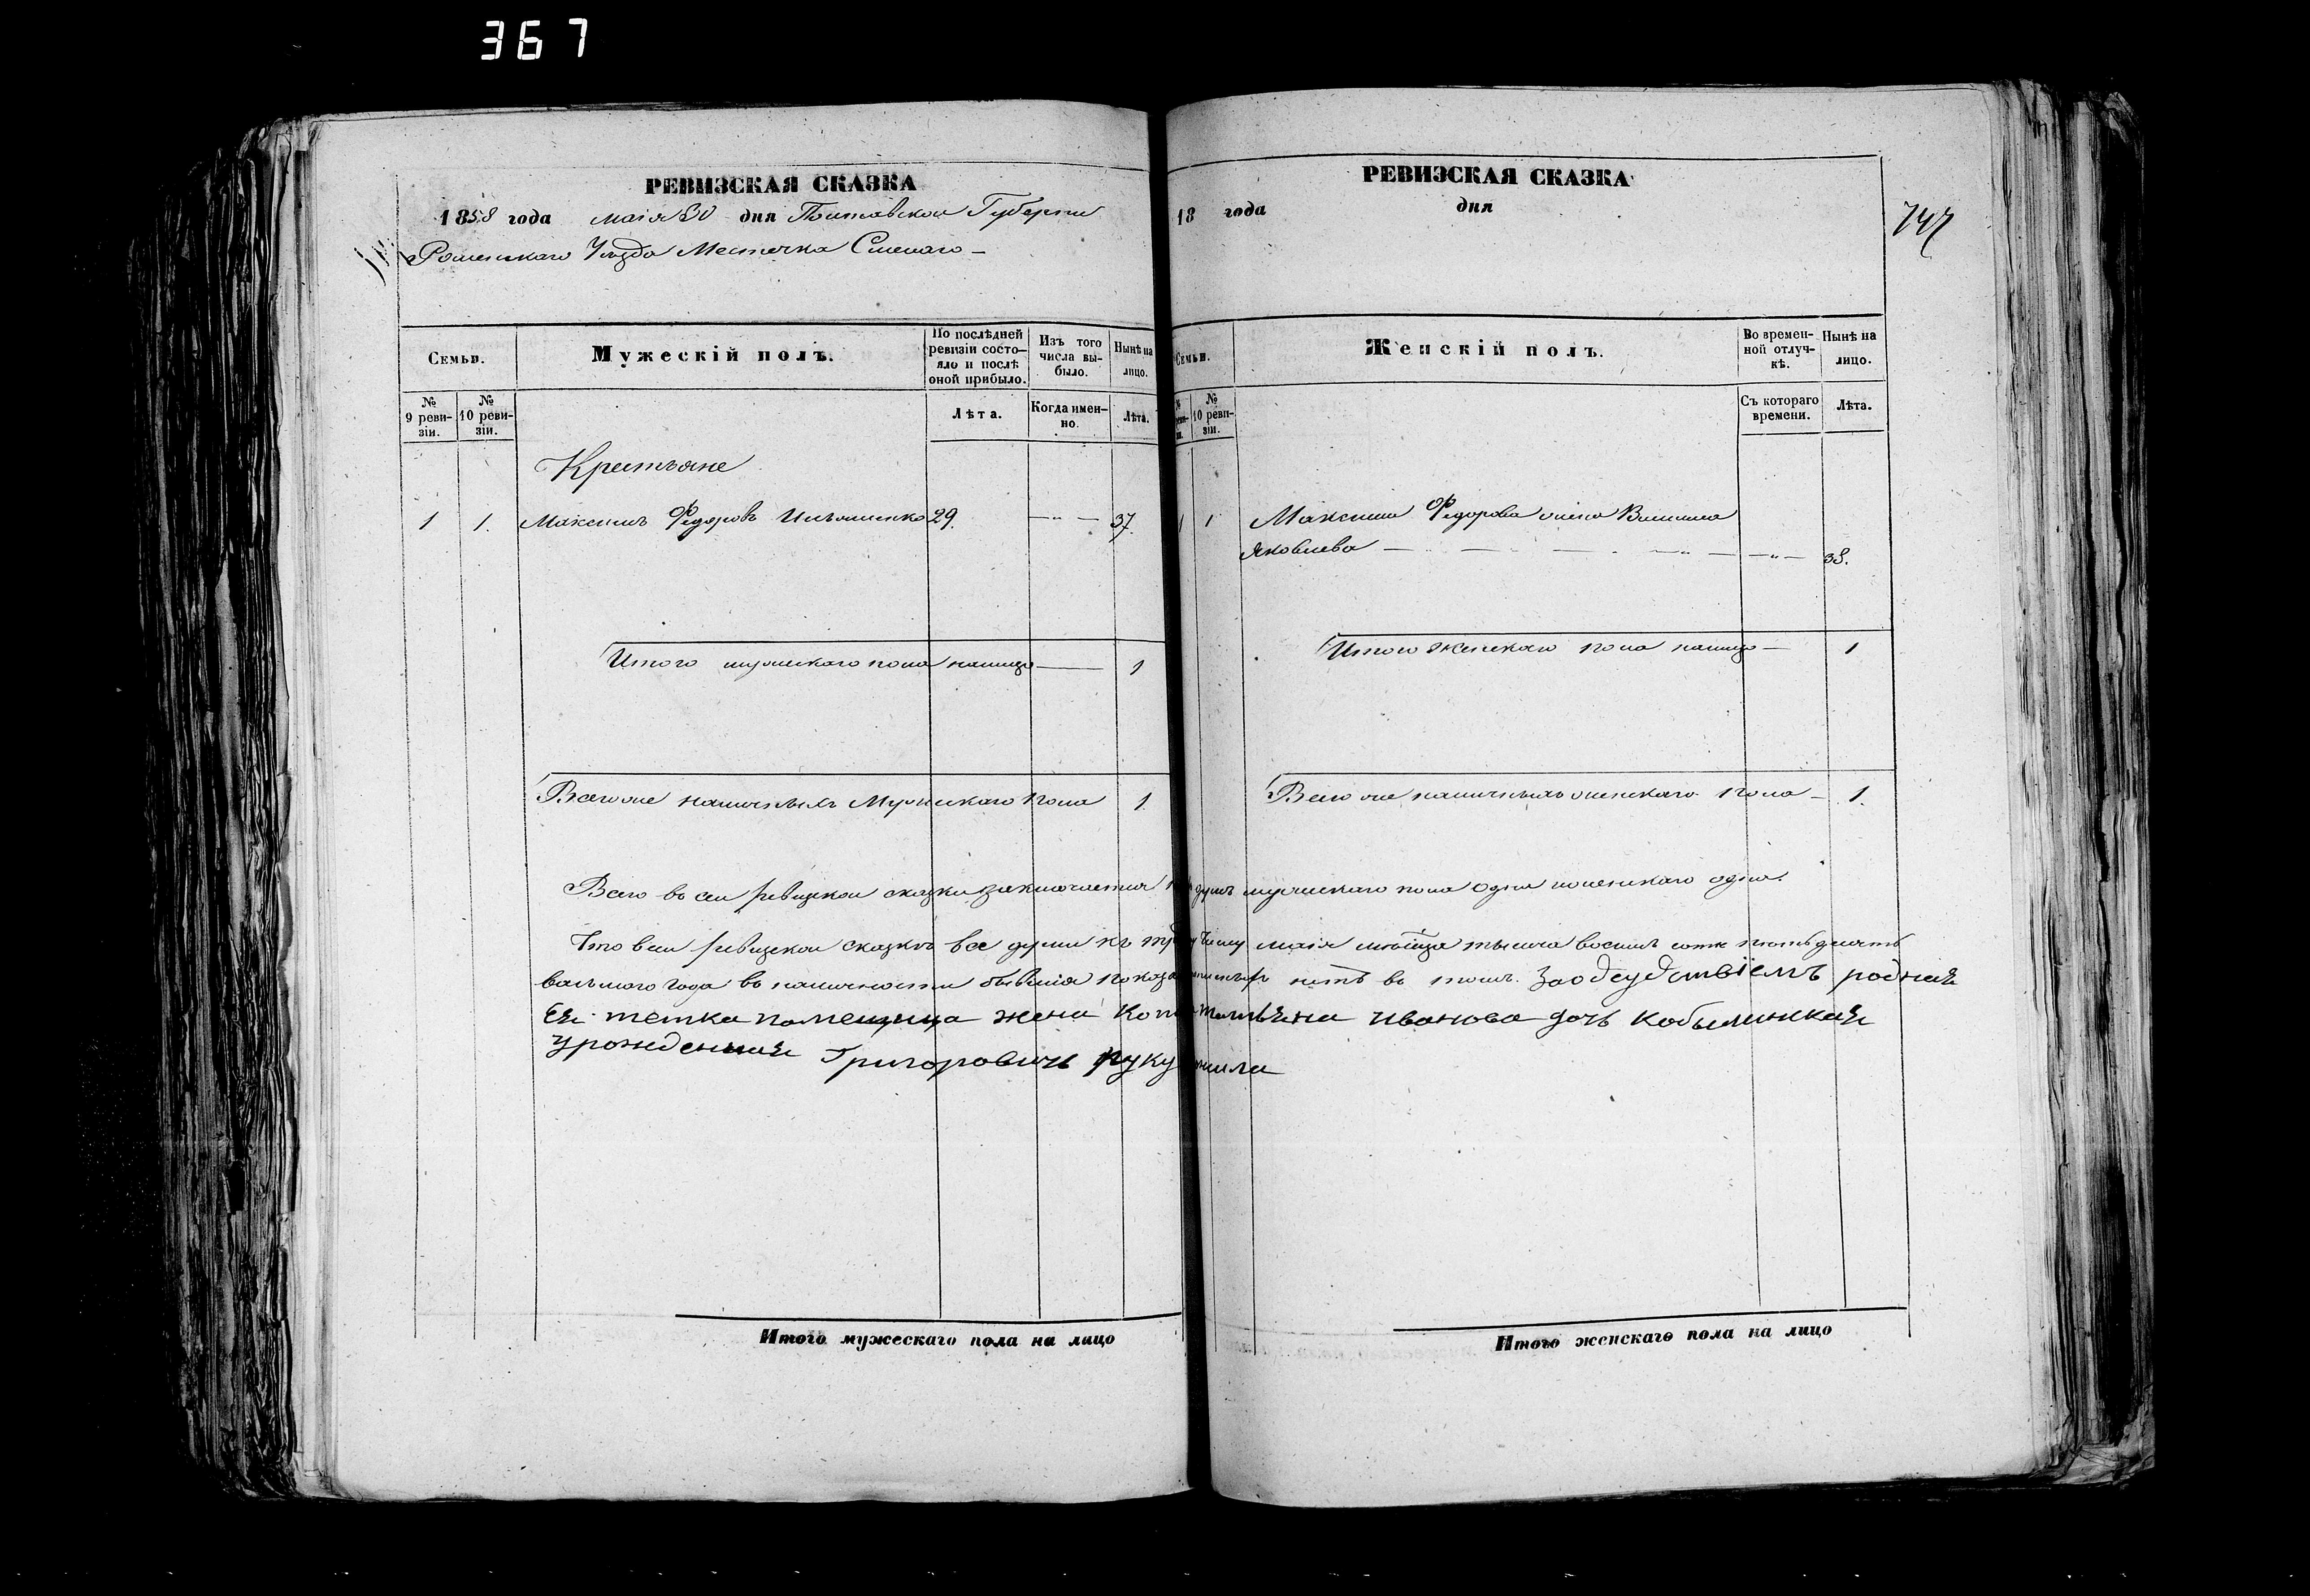 367
РЕВИЗСКАЯ СКАЗКА
1858 года маія 30 дня Полтавской Губерни
Роменскаго Уезда Местечка Смелаго
Семьи.
Мужескій полъ.
По послѣдней ревизіи состо-
яло и послѣ
оной прибыло.
Изъ того
числа вы-
было.
Нынѣ на
лицо.
№
9 реви-
зіи.
№
10 реви-
зіи.
Лѣта.
Когда имен-
но.
Лѣта.
Крестьяне
1 1. Максимъ Федоровъ 29. — " — 37.
Итого мужескаго пола налицо — 1
Всего же наличныхъ Мужескаго пола 1.
Итого мужескаго пола на лицо
РЕВИЗСКАЯ СКАЗКА
18 года дня
747
Семьи.
Женскій полъ.
Во времен-
ной отлуч-
кѣ.
Нынѣ на
лицо.
№
10 реви-
зіи.
Съ котораго
времени.
Лѣта.
1 1 Максима Федорова жена
Яковлева — " — 38.
Итого женскаго пола налицо — 1
Всего же наличныхъ женскаго пола — 1.
Всего в сеи ревизкои сказки заключается душъ мужескаго пола одна и женскаго одна.
Что в сеи ревизкои сказкѣ все души къ маія месяца тысяча восемъ сотъ пятьдесятъ
восьмого года въ наличности бывшія нетъ въ томъ. родная
Ея тетка помещица жена Иванова дочь Кобылинская
урожденная Григоровичь руку
Итого женскаго пола на лицо